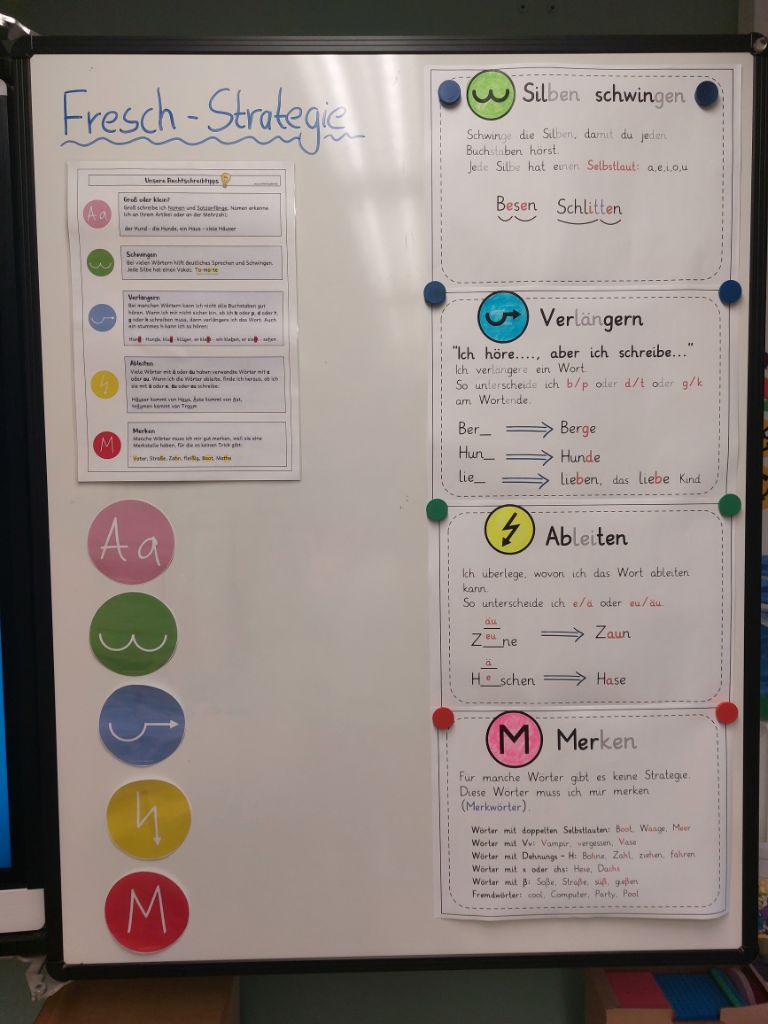 Fresch-Strategie
Unsere Rechtschreibtipps
Aa
Groß oder klein?
Groß schreibe ich Nomen und Satzanfänge. Nomen erkenne
ich an ihrem Artikel oder an der Mehrzahl:
der Hund - die Hunde, ein Haus - viele Häuser
Schwingen
Bei vielen Wörtern hilft deutliches Sprechen und Schwingen.
Jede Silbe hat einen Vokal: To-ma-te
Verlängern
Bei manchen Wörtern kann ich nicht alle Buchstaben gut
hören. Wenn ich mir nicht sicher bin, ob ich b oder p, d oder t,
g oder k schreiben muss, dann verlängere ich das Wort. Auch
ein stummes h kann ich so hören:
Hund - Hunde, klug - klüger, er klebt - wir kleben, er sieht - sehen
Ableiten
Viele Wörter mit ä oder äu haben verwandte Wörter mit a
oder au. Wenn ich die Wörter ableite, finde ich heraus, ob ich
sie mit ä oder e, äu oder eu schreibe:
Häuser kommt von Haus, Äste kommt von Ast,
träumen kommt von Traum
M
Merken
Manche Wörter muss ich mir gut merken, weil sie eine
Merkstelle haben, für die es keinen Trick gibt:
Vater, Straße, Zahn, fleißig, Boot, Mathe
Aa
M
Silben schwingen
Schwinge die Silben, damit du jeden
Buchstaben hörst.
Jede Silbe hat einen Selbstlaut: a,e,i,o,u
Besen Schlitten
Verlängern
"Ich höre...., aber ich schreibe..."
Ich verlängere ein Wort.
So unterscheide ich b/p oder d/t oder g/k
am Wortende.
Ber_ Berge
Hun_ Hunde
lie_ lieben, das liebe Kind
Ableiten
Ich überlege, wovon ich das Wort ableiten
kann.
So unterscheide ich e/ä oder eu/äu.
äu
eu
Z__ne Zaun
ä
e
H__schen Hase
M
Merken
Für manche Wörter gibt es keine Strategie.
Diese Wörter muss ich mir merken
(Merkwörter).
Wörter mit doppelten Selbstlauten: Boot, Waage, Meer
Wörter mit Vv: Vampir, vergessen, Vase
Wörter mit Dehnungs-H: Bohne, Zahl, ziehen, fahren
Wörter mit x oder chs: Hexe, Dachs
Wörter mit ß: Soße, Straße, süß, gießen
Fremdwörter: cool, Computer, Party, Pool